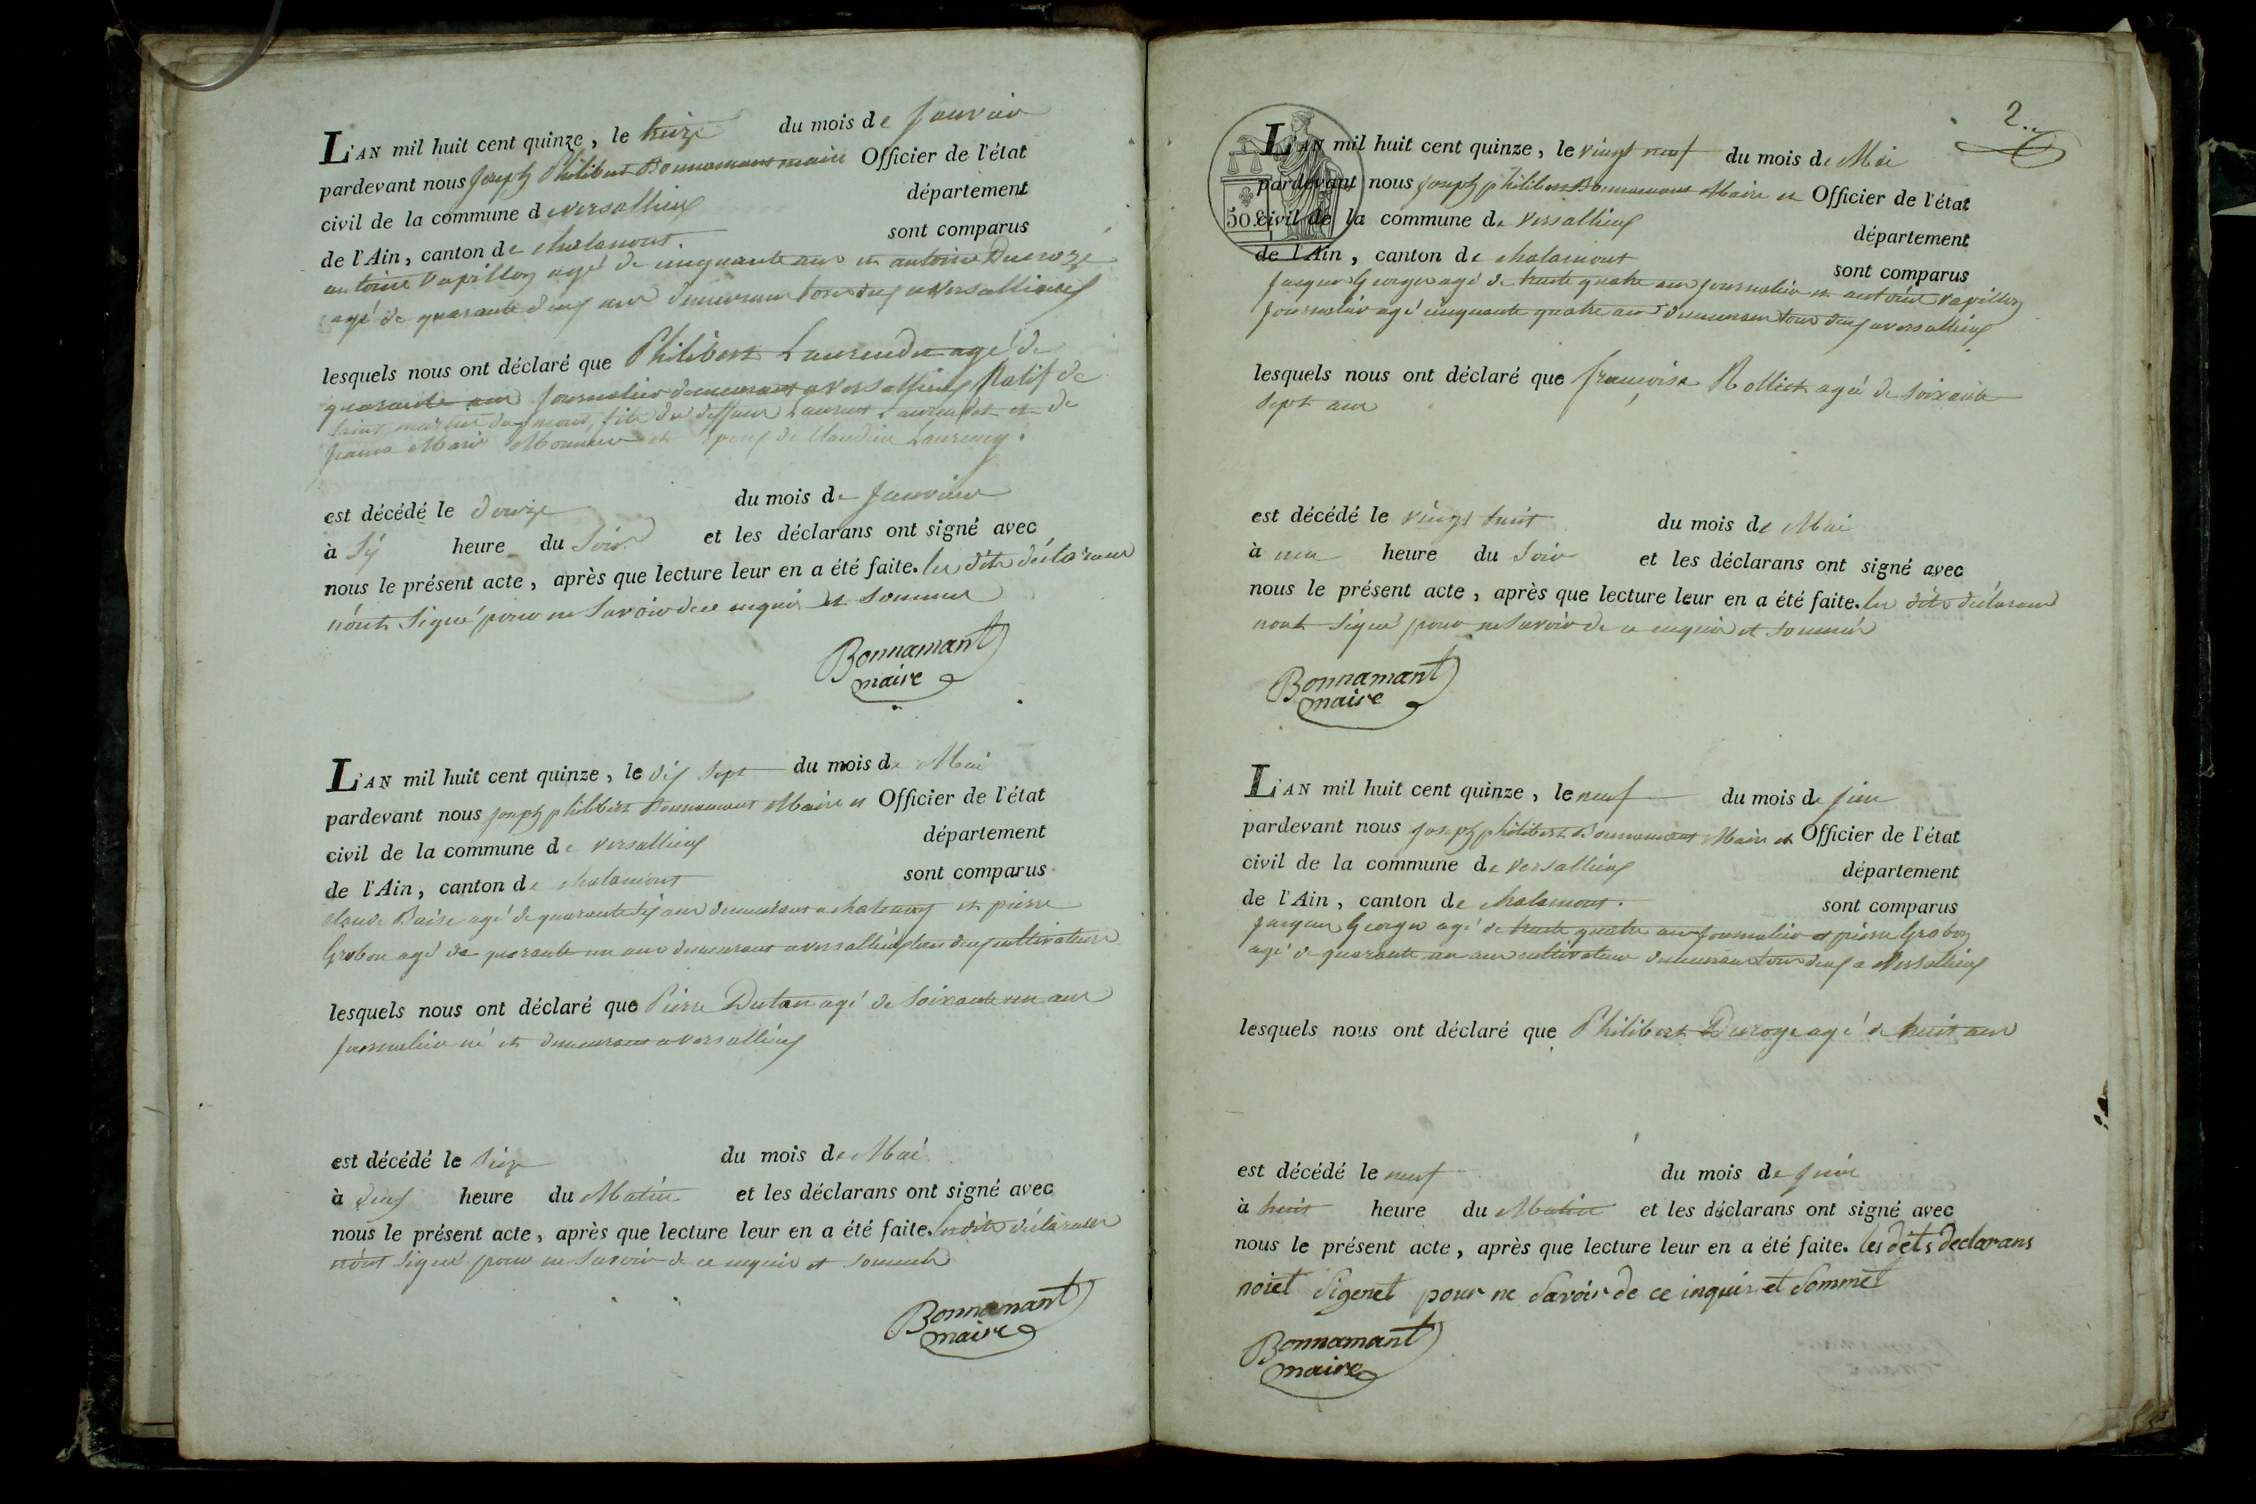 L'AN mil huit cent quinze, le treize du mois de Janvier
pardevant nous Joseph Philibert Bonnamant maire Officier de l'état
civil de la commune de versallieux département
de l'Ain, canton de chalamont. sont comparus
antoine Vapillon agé de cinquante ans et antoine Ducrozé
agé de quarante deux ans demeurans tous deux a Versallieux
lesquels nous ont déclaré que Philibert Laurendet agé de
quarante ans journalier demeurant a versallieux Natif de
saint martin du mont, fils du deffunt Laurent Laurendet et de
jeanne Marie Monnier et epoux de Claudine Laurency.
est décédé le douze du mois de Janvier
à six heure du Soir et les déclarans ont signé avec
nous le présent acte, après que lecture leur en a été faite. les dits déclarans
n'ont Signé pour ne savoir de ce enquis et sommes
Bonnamant
maire
L'AN mil huit cent quinze, le dix sept du mois de Mai
pardevant nous joseph philibert Bonnamant Maire et Officier de l'état
civil de la commune de versallieux département
de l'Ain, canton de chalamont sont comparus
claude Baise agé de quarante six ans demeurant a chatenay et pierre
Grobon agé de quarante un ans demeurant a versallieux tous deux cultivateurs
lesquels nous ont déclaré que Pierre Dutan agé de soixante un ans
journalier né et demeurant a versallieux
est décédé le Seize du mois de Mai
à deux heure du Matin et les déclarans ont signé avec
nous le présent acte, après que lecture leur en a été faite. les dits déclarans
n'ont Signé pour ne savoir de ce enquis et sommés
Bonnamant
maire
2.
50 c
L'AN mil huit cent quinze, le vingt neuf du mois de Mai
pardevant nous joseph philibert Bonnamant Maire et Officier de l'état
civil de la commune de versallieux département
de l'Ain, canton de chalamont sont comparus
jacques Georges agé de trente quatre ans journalier et antoine vapillon
journalier agé cinquante quatre ans demeurans tous deux a versallieux
lesquels nous ont déclaré que françoise Rolliet agée de soixante
sept ans
est décédé le vingt huit du mois de Mai
à une heure du Soir et les déclarans ont signé avec
nous le présent acte, après que lecture leur en a été faite. les dits déclarans
n'ont Signé pour ne savoir de ce enquis et sommés
Bonnamant
maire
L'AN mil huit cent quinze, le neuf du mois de juin
pardevant nous joseph philibert Bonnamant Maire et Officier de l'état
civil de la commune de versallieux département
de l'Ain, canton de chalamont. sont comparus
jacques Georges agé de trente quatre ans journalier et pierre Grobon
agé de quarante un ans cultivateur demeurans tous deux a Versallieux
lesquels nous ont déclaré que Philibert Duroye agé de huit ans
est décédé le neuf du mois de juin
à huit heure du Matin et les déclarans ont signé avec
nous le présent acte, après que lecture leur en a été faite. les dets declarans
noiet Sigenet pour ne Savoir de ce inquis et Sommet
Bonnamant
maire